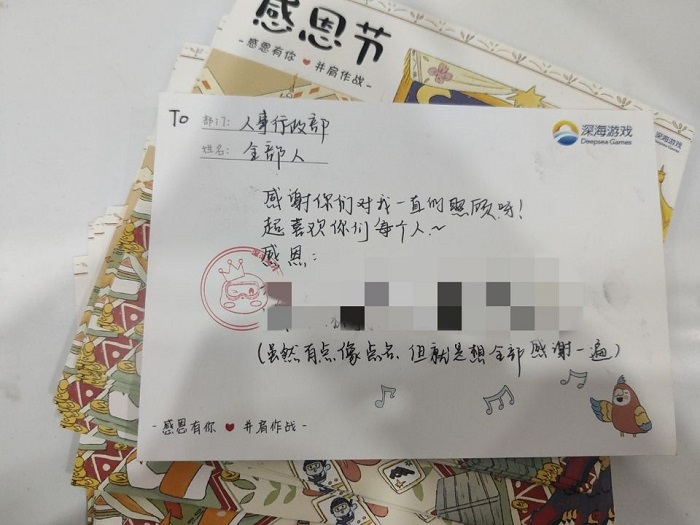 感恩节
- 感恩有你 ❤ 并肩作战 -
To 部门: 人事行政部
姓名: 全部人
深海游戏
Deepsea Games
感谢你们对我一直的照顾呀!
超喜欢你们每个人~
感恩:
(虽然有点像点名 但就是想全部感谢一遍)
- 感恩有你 ❤ 并肩作战 -
深海游戏